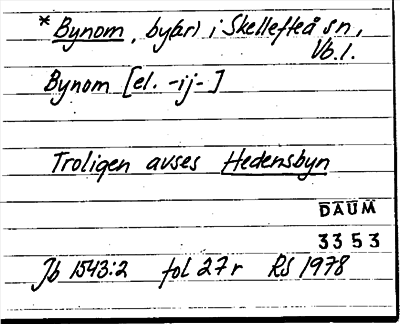 *Bynom, by(ar) i Skellefteå sn,
Vb.l.
Bynom [el. -ij-]
Troligen avses Hedensbyn
DAUM
3353
Jb 1543:2 fol 27r RS 1978